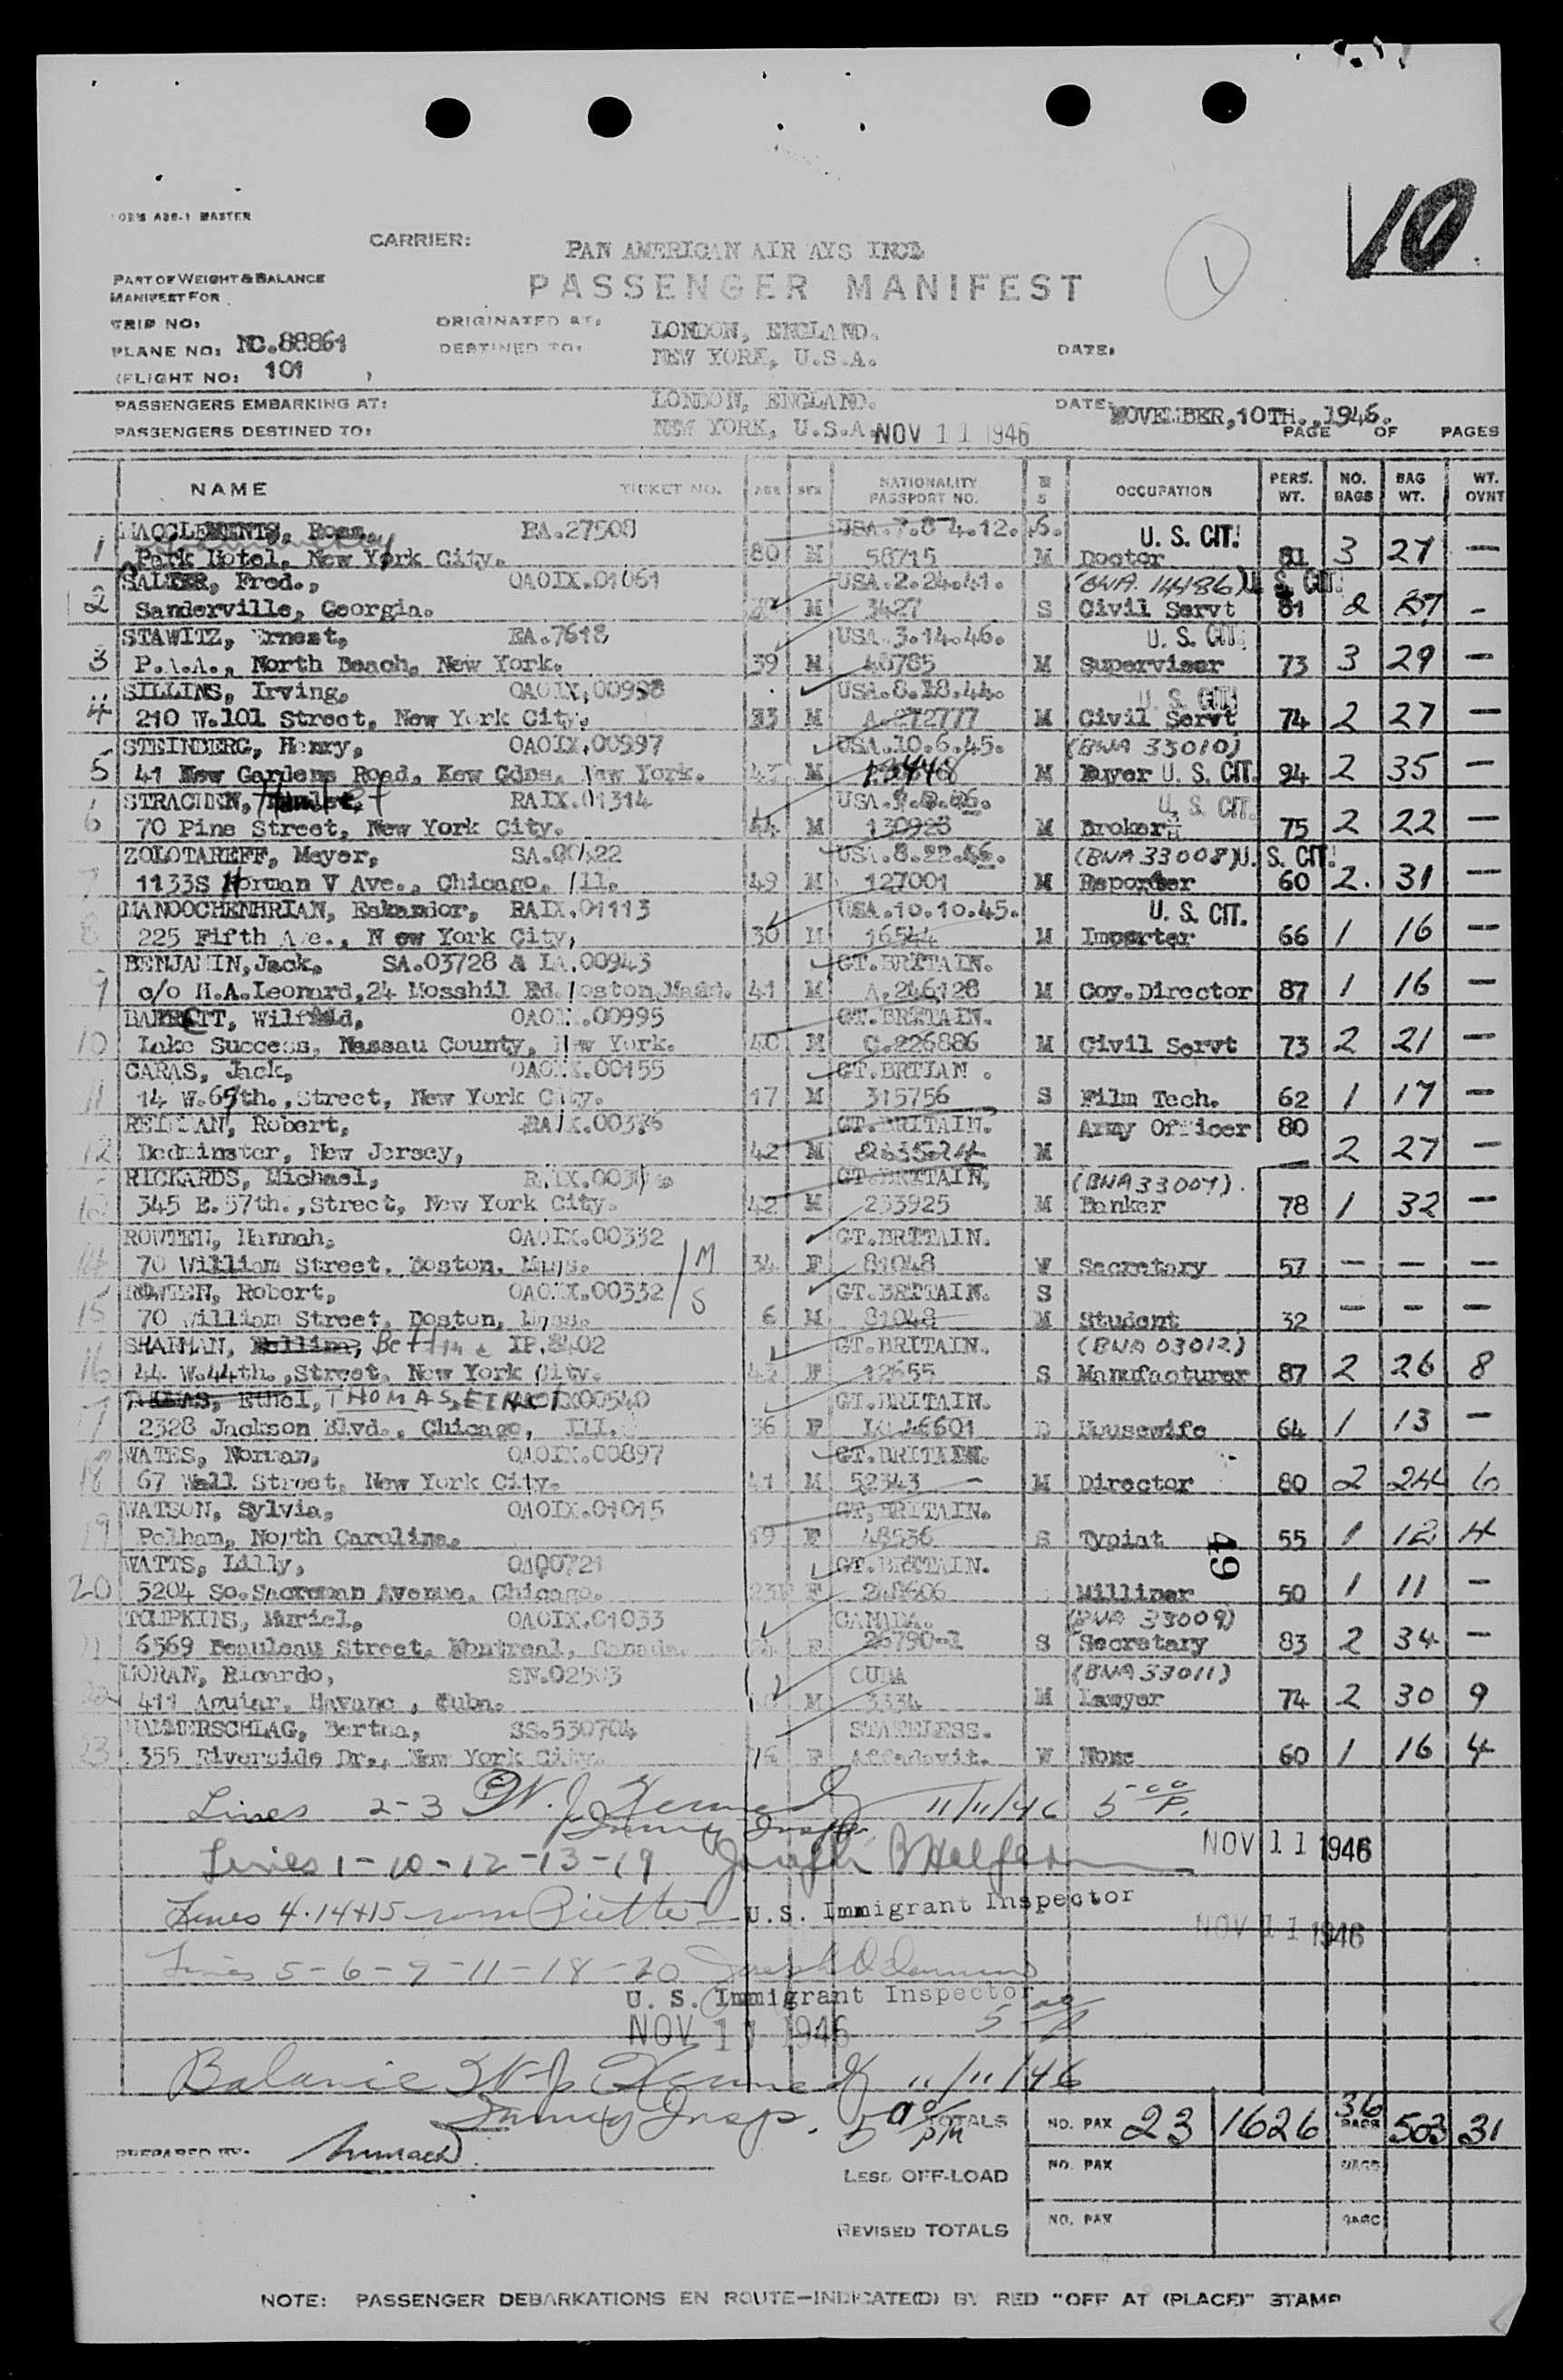 10
FORM ABG-1 MASTER
CARRIER: PAN AMERICAN AIR AYS INC.
1
PASSENGER MANIFEST
PART OF WEIGHT & BALANCE
MANIFEST FOR
TRIP NO:
PLANE NO: NC.88861
(FLIGHT NO: 101 )
ORIGINATED AT: LONDON, ENGLAND.
DESTINED TO: NEW YORK, U.S.A.
DATE:
PASSENGERS EMBARKING AT: LONDON, ENGLAND.
DATE: NOVEMBER, 10TH., 1946.
PASSENGERS DESTINED TO: NEW YORK, U.S.A. NOV 11 1946
PAGE OF PAGES
NAME TICKET NO. AGE SEX NATIONALITY PASSPORT NO. M S OCCUPATION PERS. WT. NO. BAGS BAG WT. WT. OVNT
Ross, EA.27508 U. S. CIT.
1 Park Hotel, New York City. 80 M 58715 M Doctor 81 3 27 —
Fred., OAOIX.01061 USA.2.24.41. (BNA 14486) U. S. CIT.
2 Sanderville, Georgia. M 1427 S Civil Servt 81 2 —
STAWITZ, Ernest, EA.7618 USA.3.14.46. U. S. CIT.
3 P.A.A., North Beach, New York. 39 M 48785 M Supervisor 73 3 29 —
SILLINS, Irving, OAOIX.00998 USA.8.18.44. U. S. CIT.
4 210 W.101 Street, New York City. 33 M M Civil Servt 74 2 27 —
STEINBERG, Henry, OAOIX.00997 USA.10.6.45. (BNA 33010)
5 41 Kew Gardens Road, Kew Gdns, New York. M M Buyer U. S. CIT. 94 2 35 —
RAIX.01314 U. S. CIT.
6 70 Pine Street, New York City. 44 M 130928 M Broker 75 2 22 —
ZOLOTAREFF, Meyer, SA.00422 USA.8.22.46. (BNA 33008) U. S. CIT.
7 1133S Horman V Ave., Chicago. Ill. 49 M 127001 M Reporter 60 2. 31 —
MANOOCHENHRIAN, Eskandor, RAIX.01113 USA.10.10.45. U. S. CIT.
8 225 Fifth Ave., New York City, 30 M 16544 M Importer 66 1 16 —
BENJAMIN, Jack, SA.03728 & LA.00943 GT.BRITAIN.
9 c/o H.A.Leonard, 24 Mosshil Rd. Boston, Mass. 41 M A.246128 M Coy.Director 87 1 16 —
BARRETT, OAOIX.00995 GT.BRITAIN.
10 Lake Success, Nassau County, New York. 40 M C.226886 M Civil Servt 73 2 21 —
CARAS, Jack, OAOIX.00155 GT.BRTIAN .
11 14 W.65th., Street, New York City. 17 M 315756 S Film Tech. 62 1 17 —
Robert, GT.BRITAIN. Army Officer 80
12 Bedminster, New Jersey, 42 M M 2 27 —
RICKARDS, Michael, GT.BRITAIN, (BNA 33007).
13 345 E.57th., Street, New York City. 42 M 233925 M Banker 78 1 32 —
ROWTEN, Hannah, OAOIX.00332 GT.BRITAIN.
14 70 William Street, Boston, Mass. M 34 F 81048 W Secretary 57 — — —
ROWTEN, Robert, OAOIX.00332 GT.BRITAIN. S
15 70 William Street, Boston, Mass. S 6 M 81048 M Student 32 — — —
SHAINMAN, Bettina IP.8402 GT.BRITAIN. (BNA 03012)
16 44 W.44th., Street, New York City. F 12655 S Manufacturer 87 2 26 8
Ethel, THOMAS, ETHEL 00540 GT.BRITAIN.
17 2328 Jackson Blvd., Chicago, Ill. 36 F 46601 D Housewife 64 1 13 —
WATES, Norman, OAOIX.00897 GT.BRITAIN.
18 67 Wall Street, New York City. 41 M 52343 M Director 80 2 24 6
WATSON, Sylvia, OAOIX.01015 GT,BRITAIN.
19 Pelham, North Carolina. 19 F 48536 S Typist 55 1 12 4
49
WATTS, Lilly, OAO0721 GT.BRITAIN.
20 5204 So.Sacreman Avenue, Chicago. F 248606 Milliner 50 1 11 —
TOMPKINS, Muriel, OAOIX.01033 CANADA. (BNA 33009)
21 6569 Beauleau Street, Montreal, Canada. F 26790-1 S Secretary 83 2 34 —
MORAN, Ricardo, CUBA (BNA 33011)
22 411 Aguiar, Havana, Cuba. M 3334 M Lawyer 74 2 30 9
HAMMERSCHLAG, Bertha, SS.530704 STATELESS.
23 355 Riverside Dr., New York City. F Affadavit. W None 60 1 16 4
Lines 2-3 W. J. Kennedy 11/11/46 5 00 P.
Immig Insp.
Lines 1-10-12-13-19 Joseph NOV 11 1946
Lines 4.14+15 U.S. Immigrant Inspector
NOV 11 1946
Lines 5-6-7-11-18-20 Joseph
U. S. Immigrant Inspector
NOV 11 1946 5 00 P
Balance W J Kennedy 11/11/46
Immig Insp. 5 00 PM
TOTALS NO. PAX 23 1626 36 BAGS 503 31
PREPARED BY.
LESS OFF-LOAD NO. PAX BAGS
REVISED TOTALS NO. PAX BAGS
NOTE: PASSENGER DEBARKATIONS EN ROUTE—INDICATE(D) BY RED "OFF AT (PLACE)" STAMP